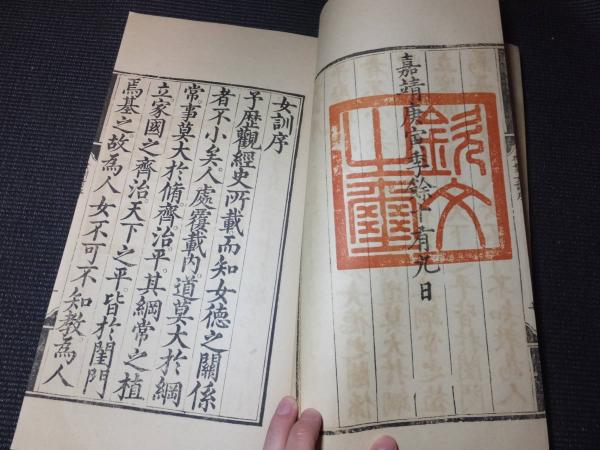 嘉靖庚寅季餘十有九日
欽文之璽
女訓序
予歷觀經史所載而知女德之關係
者不小矣。人處覆載內。道莫大於綱
常。事莫大於脩齊治平。其綱常之植
立家國之齊治。天下之平。皆於閨門
焉基之。故為人女不可不知教。為人